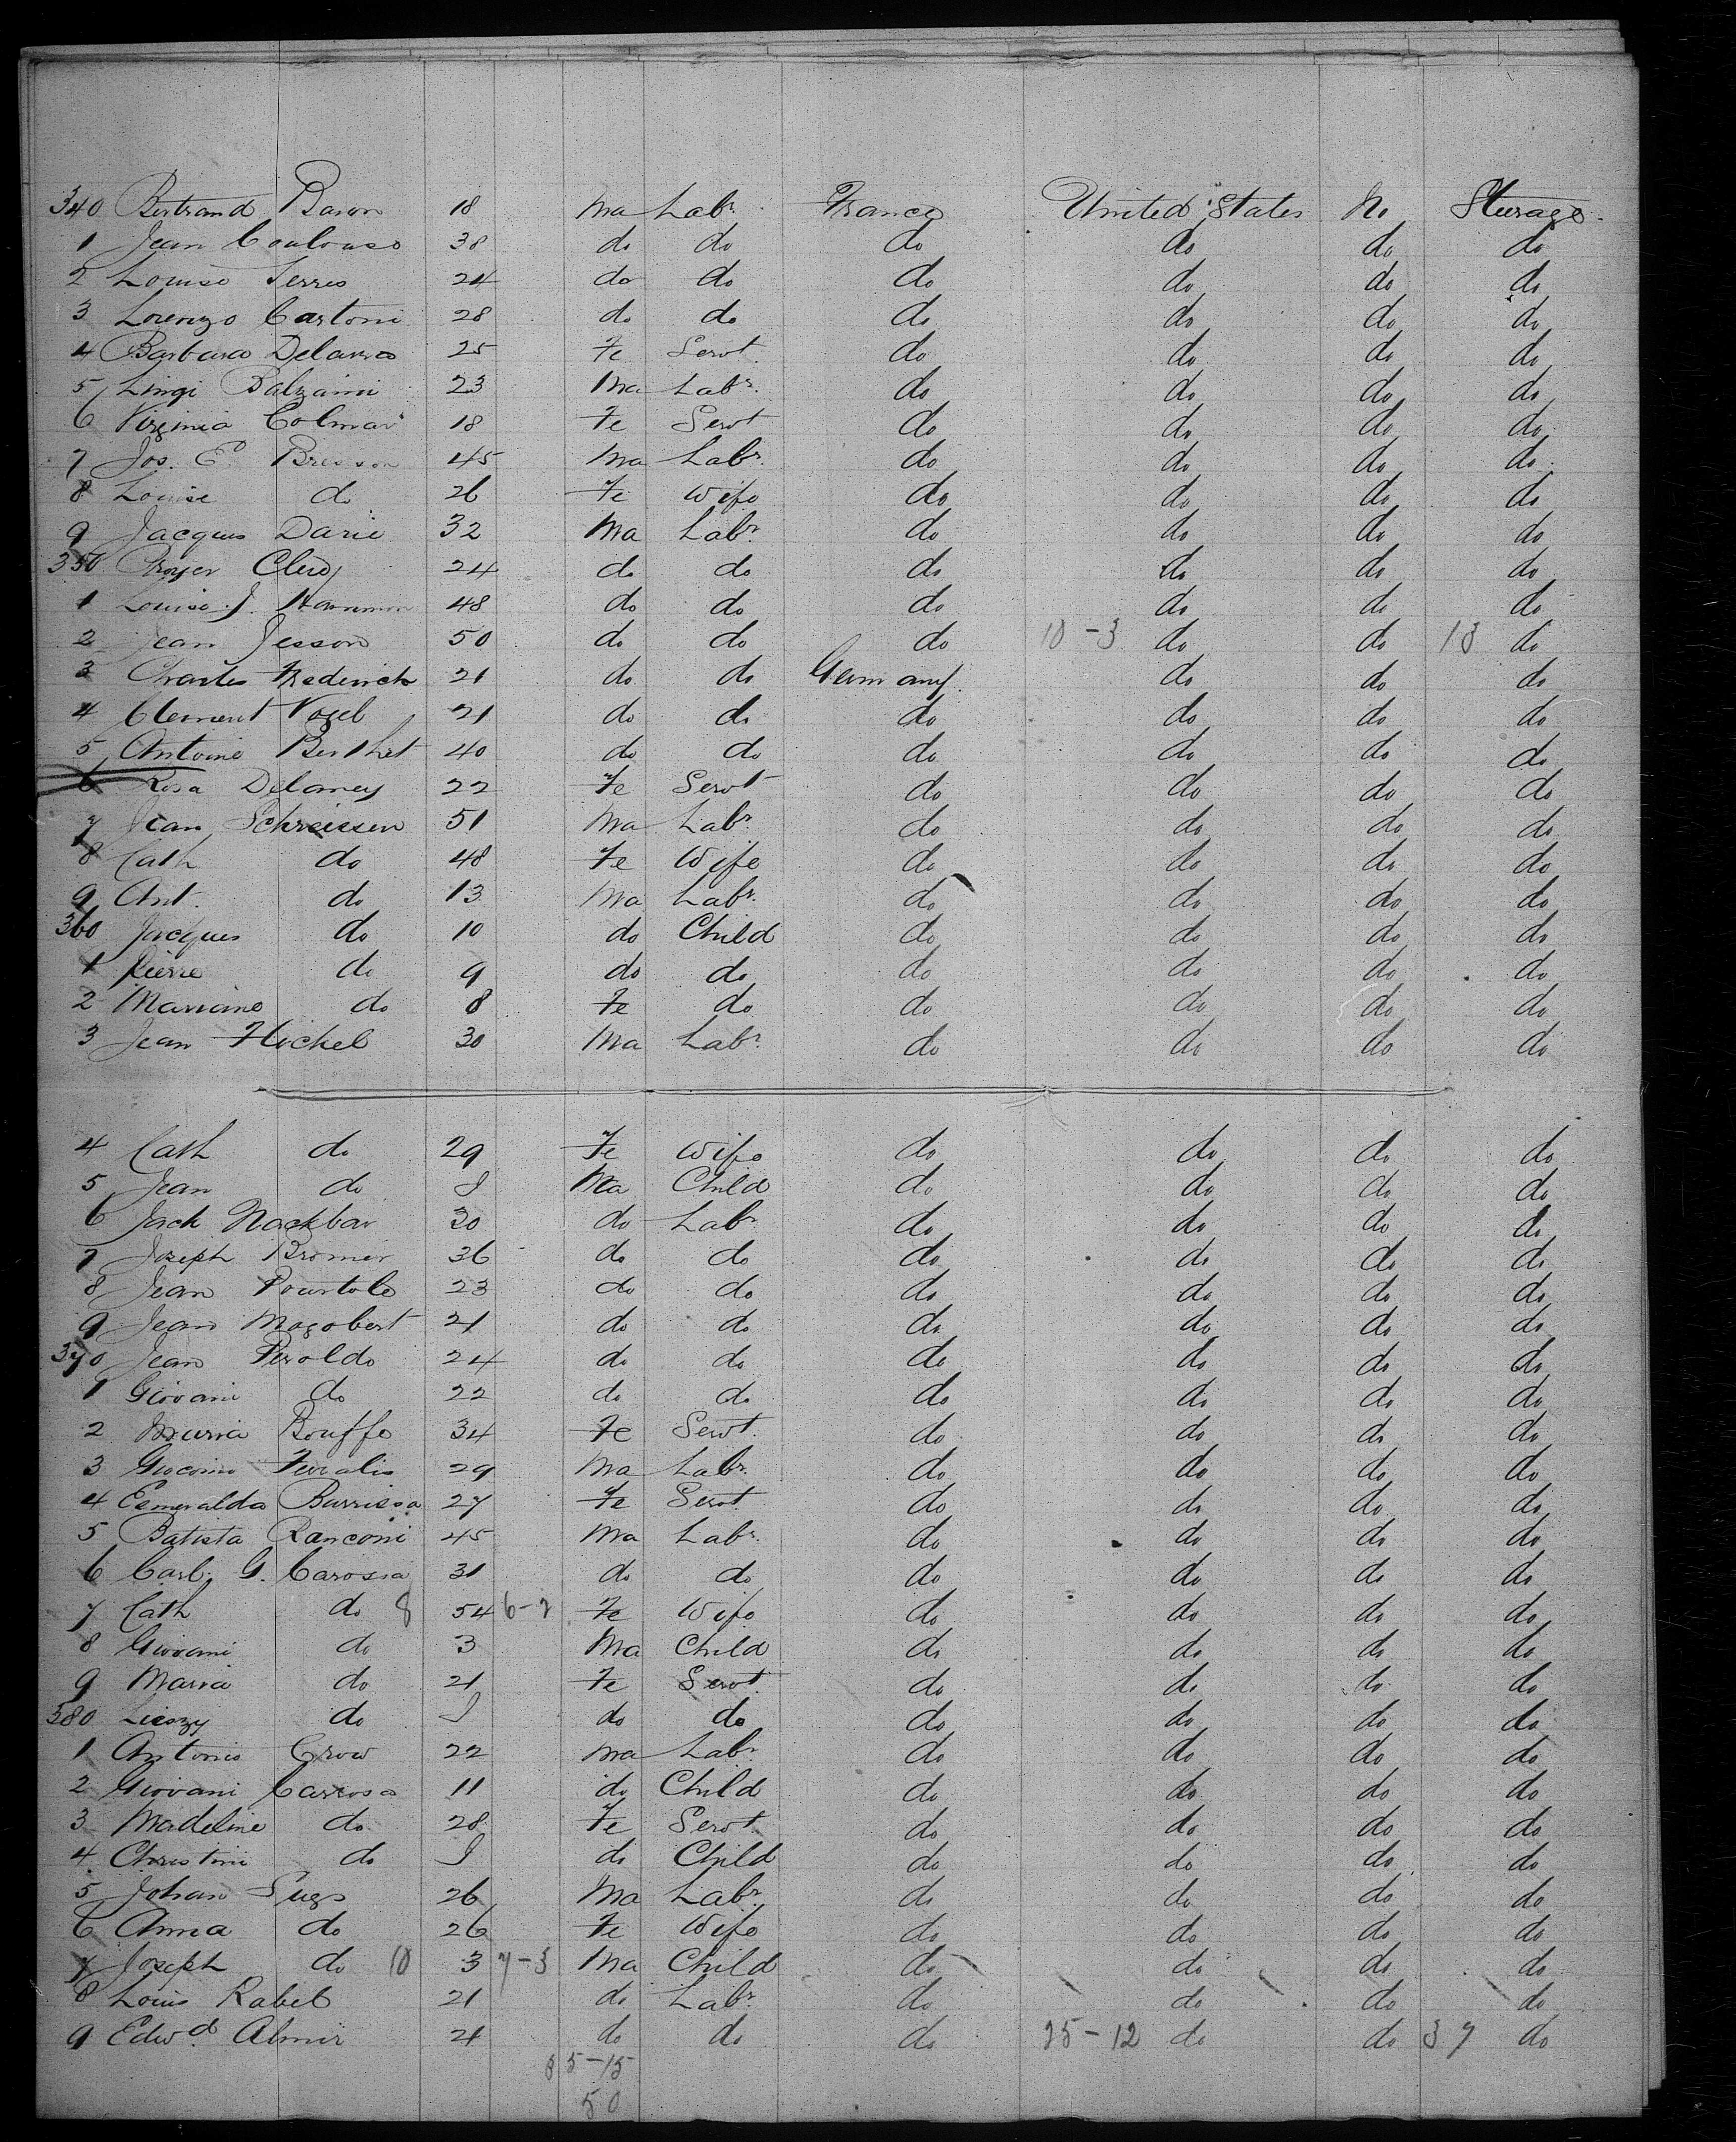 340 Bertrand Baron 18 Ma Labr. France United States No Steerage
1 Jean Coulouso 38 do do do do do do
2 Louise Serres 24 do do do do do do
3 Lorenzo Cartoni 28 do do do do do do
4 Barbara 25 Fe Servt. do do do do
5 Lingi Balzaini 23 Ma Labr. do do do do
6 Virginia Colmar 18 Fe Servt do do do do
7 Jos. E. Bresson 45 Ma Labr. do do do do
8 Louise do 26 Fe Wife do do do do
9 Jacques Darie 32 Ma Labr. do do do do
350 Clerz 24 do do do do do do
1 Louise J. 48 do do do do do do
2 Jean Jesson 50 do do do 10-3 do do 13 do
3 Charles Frederich 21 do do Germany do do do
4 Clement Vogel 21 do do do do do do
5 Antoine Berthet 40 do do do do do do
6 Rosa Delaney 22 Fe Servt do do do do
7 Jean Schreissen 51 Ma Labr. do do do do
8 Cath do 48 Fe Wife do do do do
9 Ant. do 13 Ma Labr. do do do do
360 Jacques do 10 do Child do do do do
1 Pierre do 9 do do do do do do
2 Mariane do 8 Fe do do do do do
3 Jean Hickel 30 Ma Labr. do do do do
4 Cath do 29 Fe Wife do do do do
5 Jean do J Ma Child do do do do
6 Jack Nackbar 30 do Labr do do do do
7 Joseph Bromer 36 do do do do do do
8 Jean Pourtole 23 do do do do do do
9 Jean Magobert 21 do do do do do do
370 Jean Peroldo 24 do do do do do do
1 Giovani do 22 do do do do do do
2 Maria Bouffe 34 Fe Servt. do do do do
3 Giacomo Ferralis 29 Ma Labr. do do do do
4 Esmeralda Barrissa 27 Fe Servt. do do do do
5 Batista Ranconi 45 Ma Labr. do do do do
6 Carl. G. Carossa 31 do do do do do do
7 Cath do 8 54 6-2 Fe Wife do do do do
8 Giovani do 3 Ma Child do do do do
9 Maria do 21 Fe Servt. do do do do
380 do J do do do do do do
1 Antonio Crow 22 Ma Labr. do do do do
2 Giovani Carrosa 11 do Child do do do do
3 Madeline do 28 Fe Servt. do do do do
4 Christini do J do Child do do do do
5 Johan 26 Ma Labr. do do do do
6 Anna do 26 Fe Wife do do do do
7 Joseph do 10 3 7-3 Ma Child do do do do
8 Louis Rabel 21 do Labr. do do do do
9 Edwd. Almir 21 do do do 25-12 do do 37 do
35-15
50